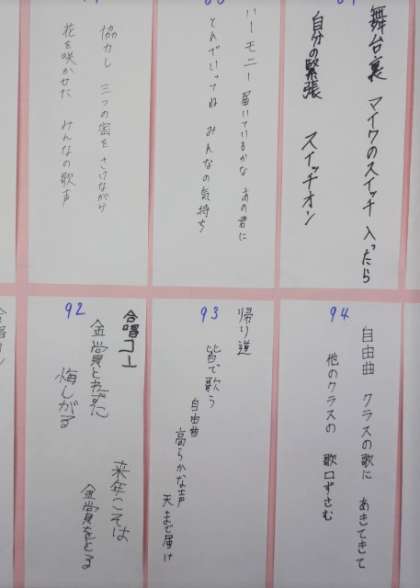 舞台裏 マイクのスイッチ 入ったら
自分の緊張 スイッチオン
ハーモニー 届いているかな あの君に
とんでいってね みんなの気持ち
協力し 三つの密を さけながら
花を咲かせた みんなの歌声
94
自由曲 クラスの歌に あきてきて
他のクラスの 歌口ずさむ
93
帰り道
皆で歌う
自由曲
高らかな声
天まで届け
92
合唱コン
金賞とれずに
悔しがる
来年こそは
金賞をとる